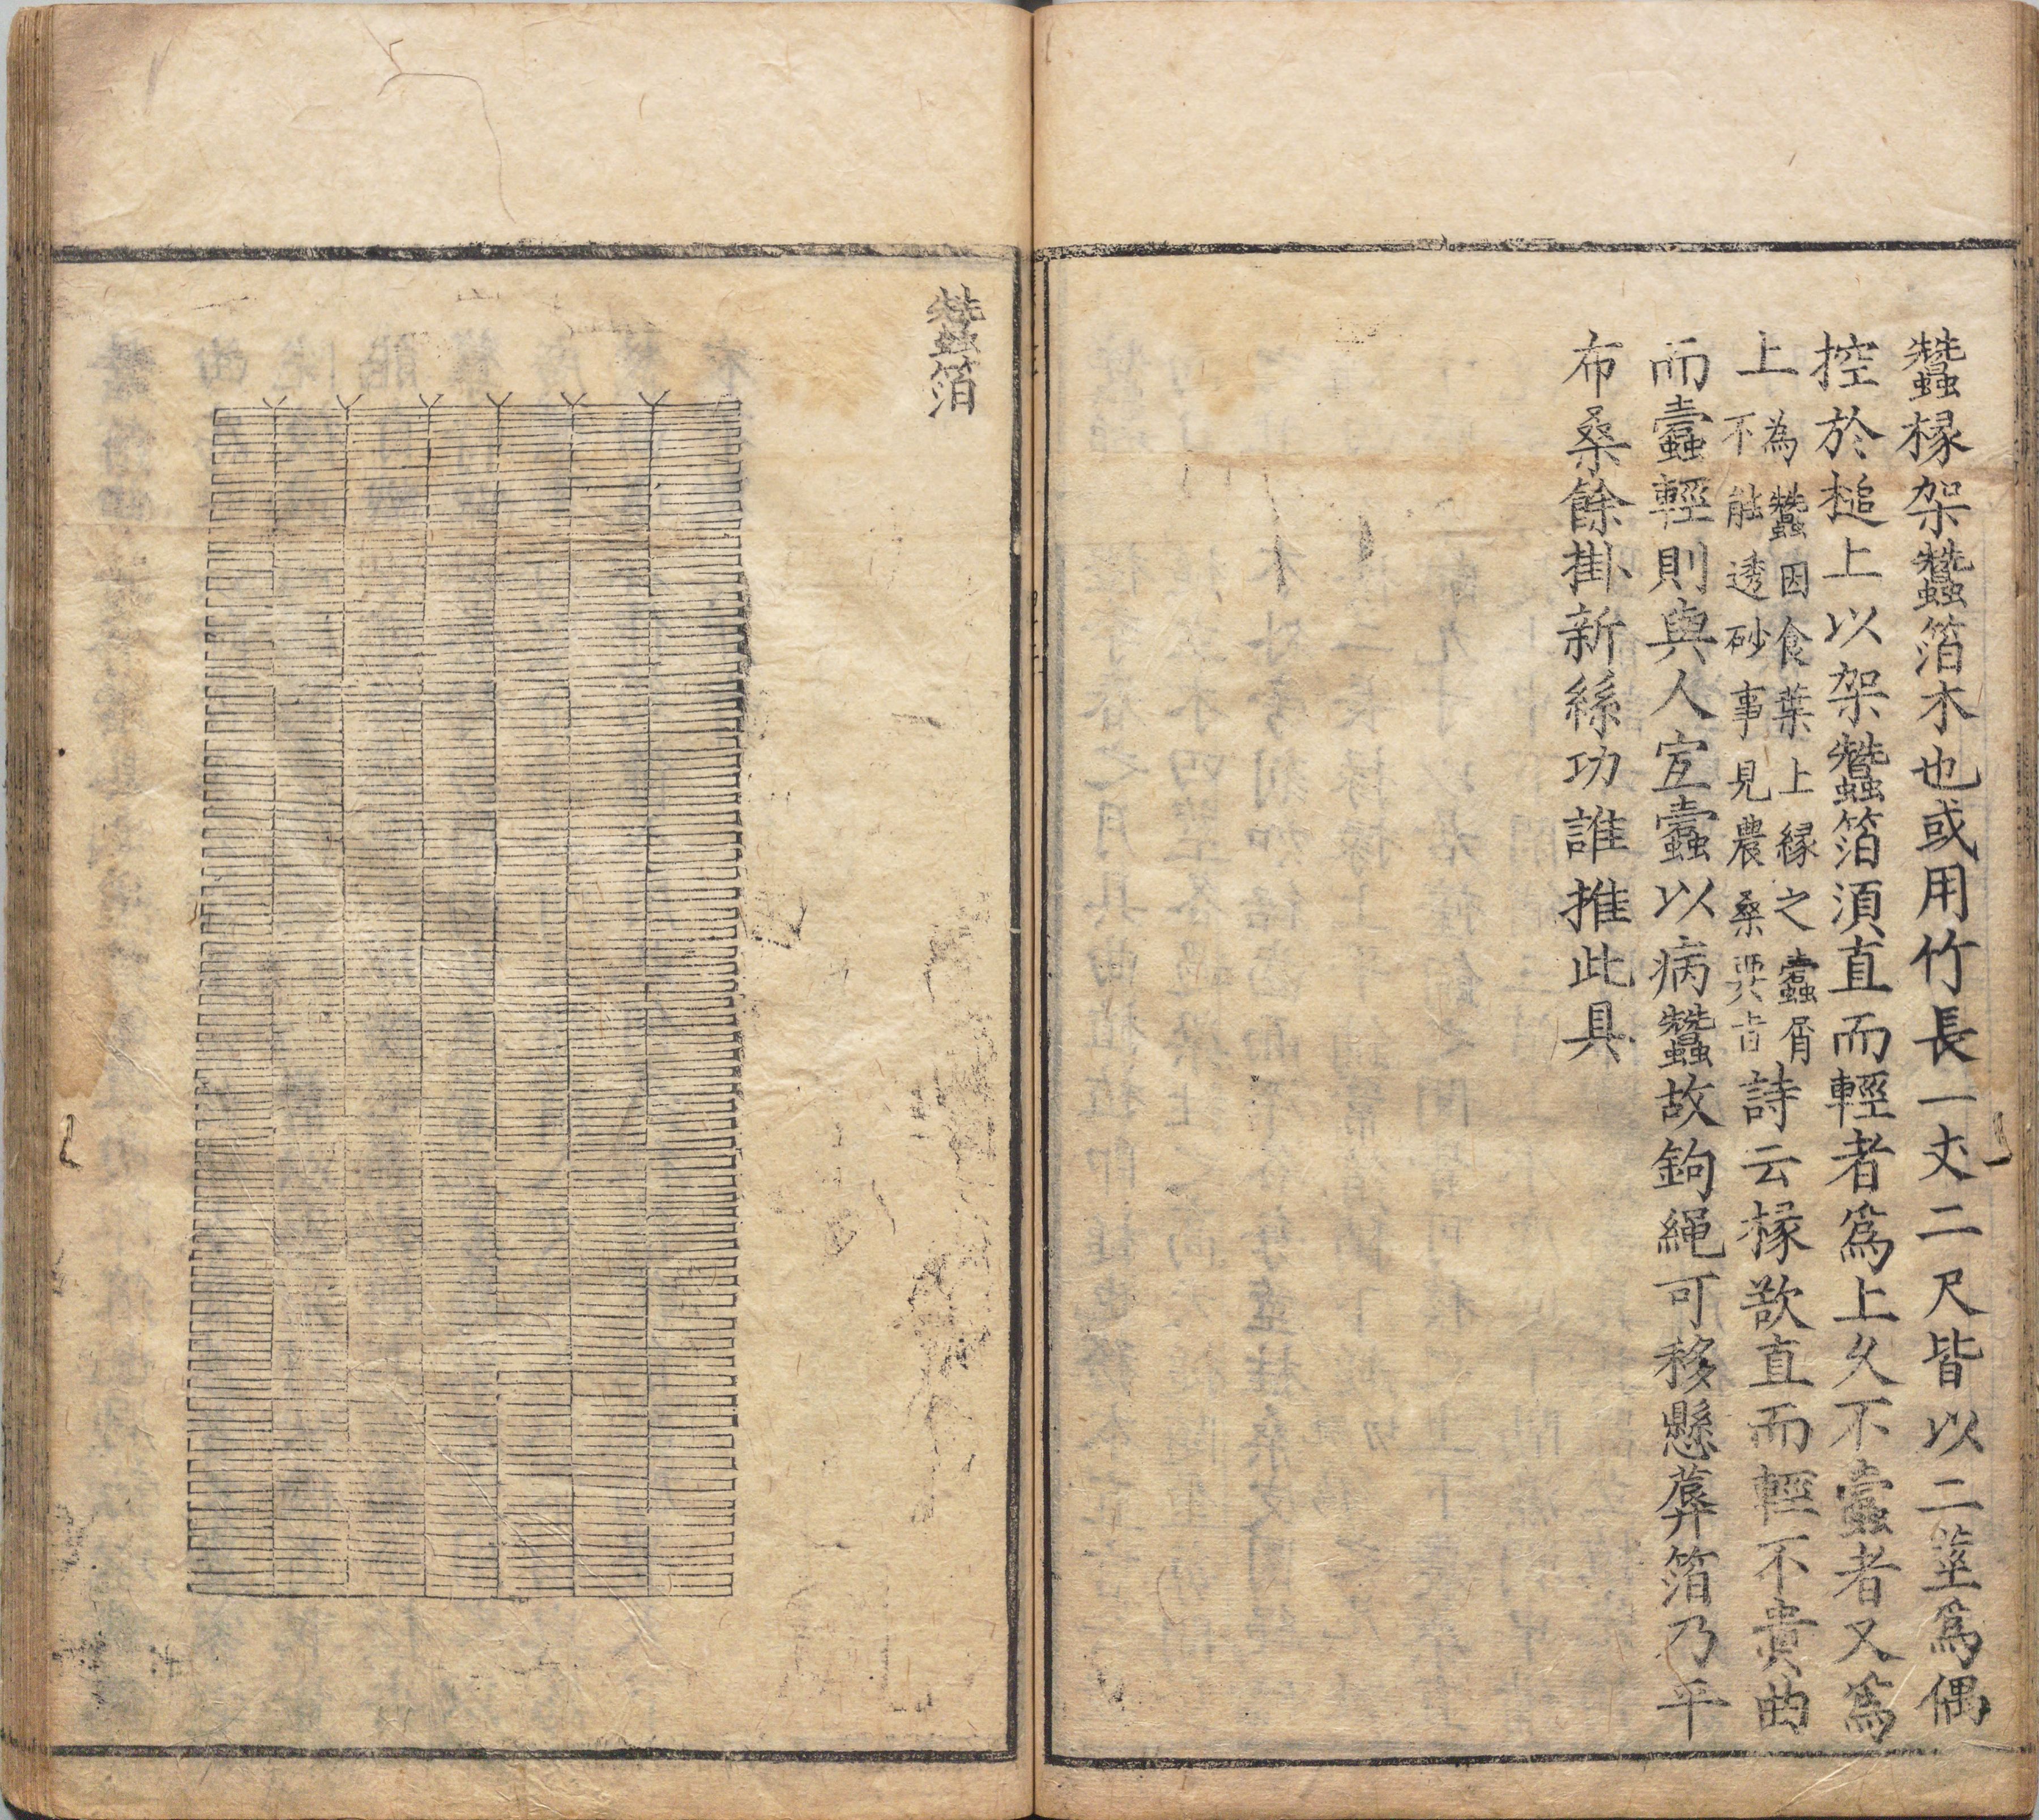 蠶椽架蠶箔木也或用竹長一丈二尺皆以二莖爲偶
控於槌上以架蠶箔須直而輕者爲上久不蠹者又爲
上為蠶因食葉上緣之蠹屑不能透砂事見農桑要旨詩云椽欲直而輕不貴曲
而蠹輕則與人宜蠹以病蠶故鉤繩可移懸薜箔乃平
布桑餘掛新絲功誰推此具
蠶箔